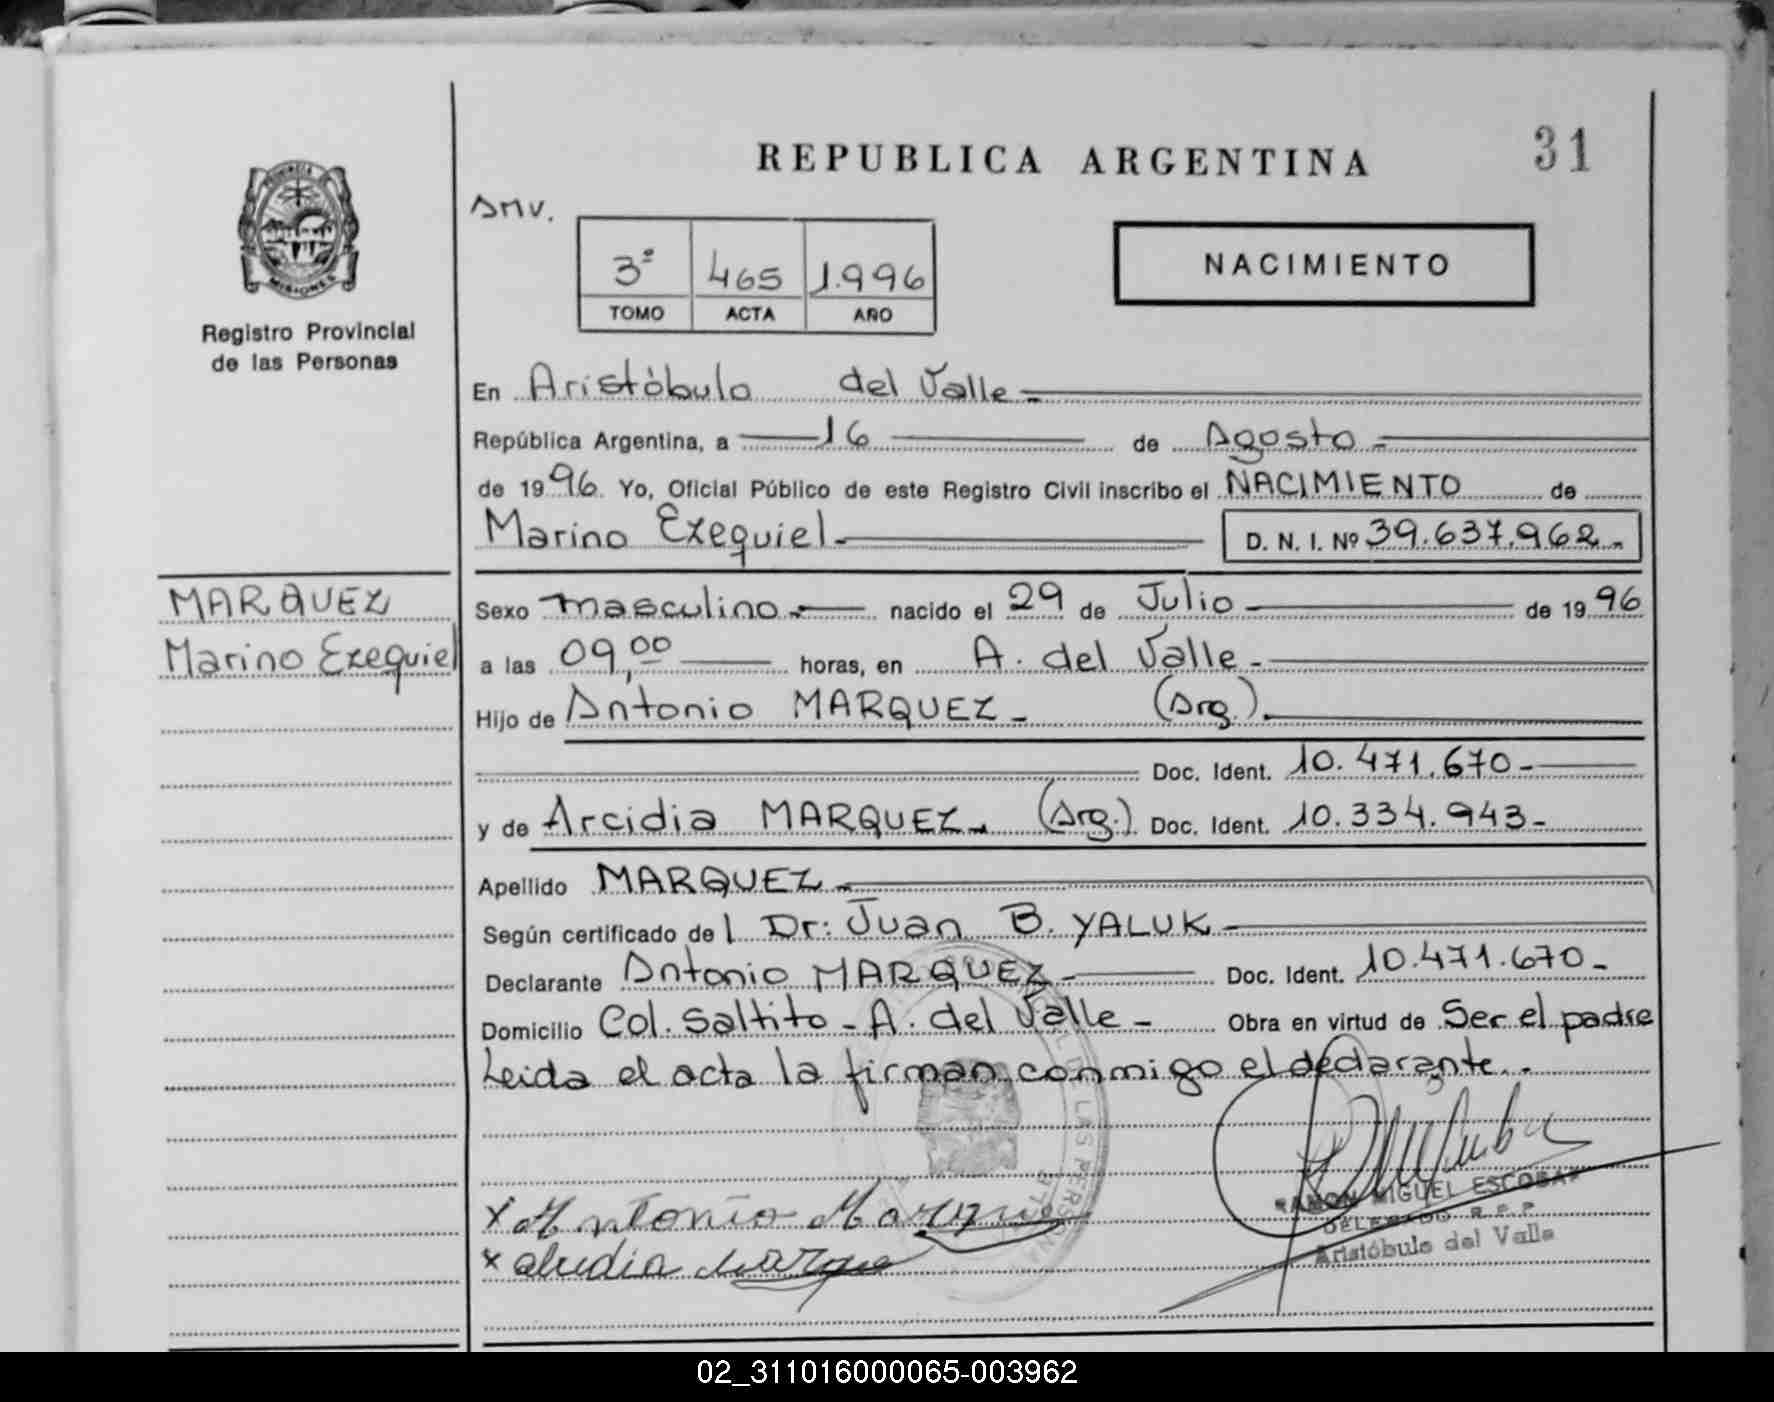 31
REPUBLICA ARGENTINA
PROVINCIA
MISIONES
Registro Provincial
de las Personas
AMV.
3º 465 1.996
TOMO ACTA AÑO
NACIMIENTO
En Aristóbulo del Valle -
República Argentina, a 16 de Agosto -
de 1996. Yo, Oficial Público de este Registro Civil inscribo el NACIMIENTO de
Marino Ezequiel - D. N. I. Nº 39.637.962.-
MARQUEZ
Marino Ezequiel
Sexo masculino.- nacido el 29 de Julio - de 1996
a las 09,00 horas, en A. del Valle -
Hijo de Antonio MARQUEZ - (Arg.).
Doc. Ident. 10.471.670 -
y de Arcidia MARQUEZ - (Arg.) Doc. Ident. 10.334.943 -
Apellido MARQUEZ -
Según certificado del Dr: Juan B. YALUK
Declarante Antonio MARQUEZ - Doc. Ident. 10.471.670 -
Domicilio Col. Saltito - A. del Valle - Obra en virtud de Ser el padre
Leida el acta la firman conmigo el declarante. -
DE LAS PERSONAS
x Antonio Marquez
x
RAMON MIGUEL ESCOBAR
DELEGADO R.P.P.
Aristóbulo del Valle
02_311016000065-003962